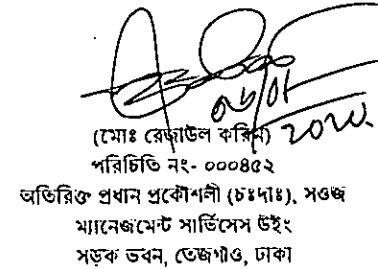 ০৬/০১
২০২০
(মোঃ রেজাউল করিম)
পরিচিতি নং- ০০০৪৫২
অতিরিক্ত প্রধান প্রকৌশলী (চঃদাঃ), সওজ
ম্যানেজমেন্ট সার্ভিসেস উইং
সড়ক ভবন, তেজগাঁও, ঢাকা